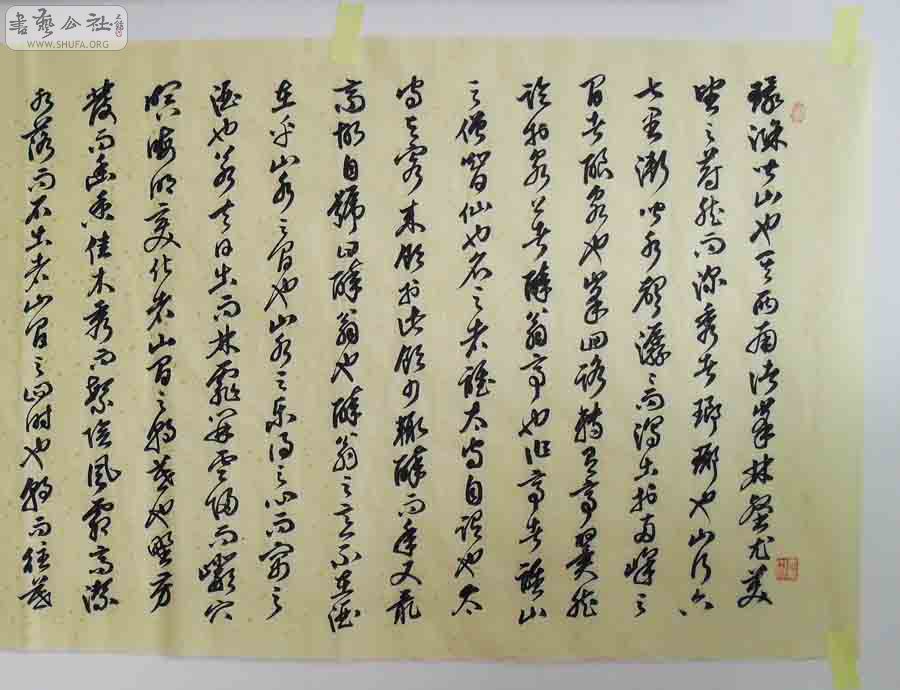 書藝公社
WWW.SHUFA.ORG
環滁皆山也其西南諸峯林壑尤美
望之蔚然而深秀者瑯琊也山行六
七里漸聞水聲潺々而瀉出於兩峰之
間者釀泉也峯回路轉有亭翼然
臨於泉上者醉翁亭也作亭者誰山
之僧智仙也名之者誰太守自謂也太
守與客來飲於此飲少輒醉而年又最
高故自號曰醉翁也醉翁之意不在酒
在乎山水之間也山水之樂得之心而寓之
酒也若夫日出而林霏開雲歸而巖穴
暝晦明變化者山間之朝暮也野芳
發而幽香佳木秀而繁陰風霜高潔
水落而石出者山間之四時也朝而往暮